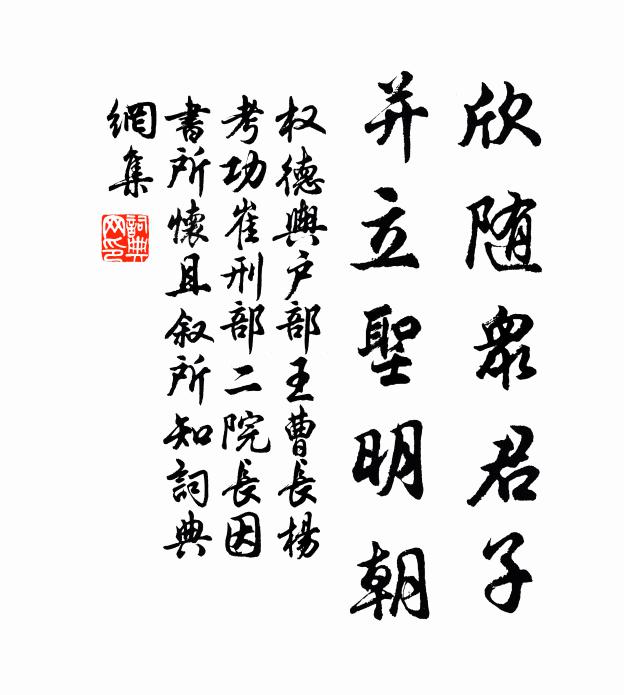 欣随衆君子
并立聖明朝
权德輿户部王曹長楊
考功崔刑部二院長因
書所懷且叙所知詞典
網集
詞典网印